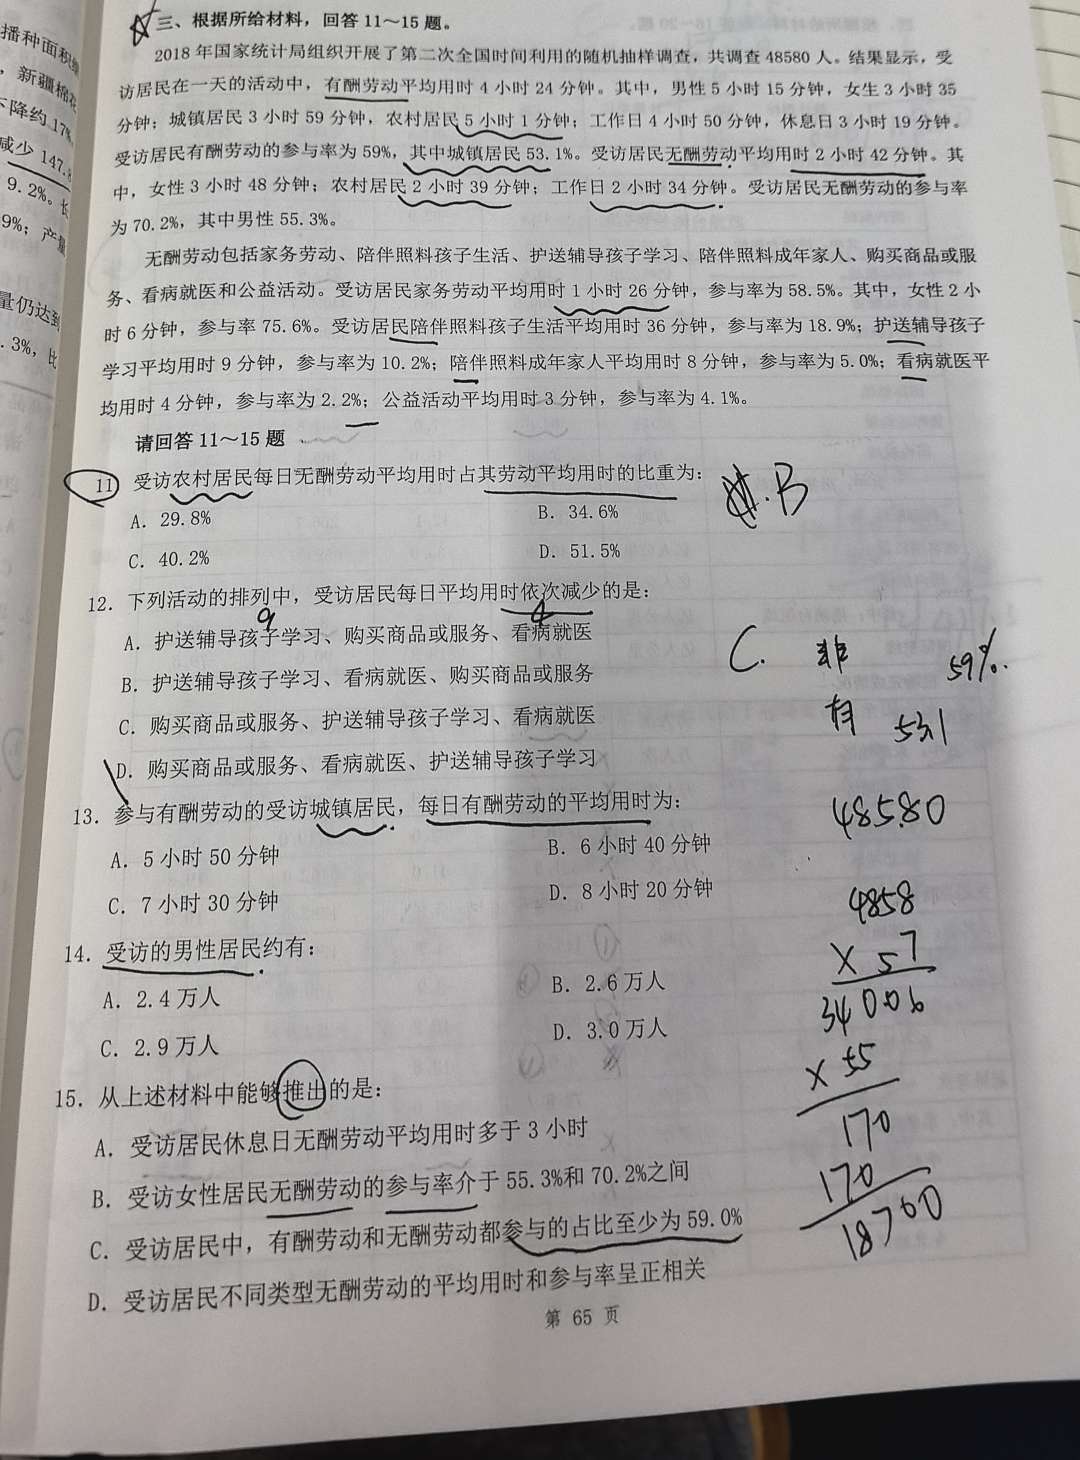 播种面积
，新疆棉花
下降约 17%
减少 147.8
9.2%。长
9%；产量
量仍达到
.3%，比
三、根据所给材料，回答 11～15 题。
2018 年国家统计局组织开展了第二次全国时间利用的随机抽样调查，共调查 48580 人。结果显示，受
访居民在一天的活动中，有酬劳动平均用时 4 小时 24 分钟。其中，男性 5 小时 15 分钟，女生 3 小时 35
分钟；城镇居民 3 小时 59 分钟，农村居民 5 小时 1 分钟；工作日 4 小时 50 分钟，休息日 3 小时 19 分钟。
受访居民有酬劳动的参与率为 59%，其中城镇居民 53.1%。受访居民无酬劳动平均用时 2 小时 42 分钟。其
中，女性 3 小时 48 分钟；农村居民 2 小时 39 分钟；工作日 2 小时 34 分钟。受访居民无酬劳动的参与率
为 70.2%，其中男性 55.3%。
无酬劳动包括家务劳动、陪伴照料孩子生活、护送辅导孩子学习、陪伴照料成年家人、购买商品或服
务、看病就医和公益活动。受访居民家务劳动平均用时 1 小时 26 分钟，参与率为 58.5%。其中，女性 2 小
时 6 分钟，参与率 75.6%。受访居民陪伴照料孩子生活平均用时 36 分钟，参与率为 18.9%；护送辅导孩子
学习平均用时 9 分钟，参与率为 10.2%；陪伴照料成年家人平均用时 8 分钟，参与率为 5.0%；看病就医平
均用时 4 分钟，参与率为 2.2%；公益活动平均用时 3 分钟，参与率为 4.1%。
请回答 11～15 题
11 受访农村居民每日无酬劳动平均用时占其劳动平均用时的比重为：
B
A. 29.8% B. 34.6%
C. 40.2% D. 51.5%
12. 下列活动的排列中，受访居民每日平均用时依次减少的是：
9 4
A. 护送辅导孩子学习、购买商品或服务、看病就医
B. 护送辅导孩子学习、看病就医、购买商品或服务
C. 购买商品或服务、护送辅导孩子学习、看病就医
D. 购买商品或服务、看病就医、护送辅导孩子学习
C. 非 59%.
有 53.1
13. 参与有酬劳动的受访城镇居民，每日有酬劳动的平均用时为：
A. 5 小时 50 分钟 B. 6 小时 40 分钟
C. 7 小时 30 分钟 D. 8 小时 20 分钟
48580
14. 受访的男性居民约有：
A. 2.4 万人 B. 2.6 万人
C. 2.9 万人 D. 3.0 万人
4858
× 57
34006
× 55
170
170
18700
15. 从上述材料中能够推出的是：
A. 受访居民休息日无酬劳动平均用时多于 3 小时
B. 受访女性居民无酬劳动的参与率介于 55.3%和 70.2%之间
C. 受访居民中，有酬劳动和无酬劳动都参与的占比至少为 59.0%
D. 受访居民不同类型无酬劳动的平均用时和参与率呈正相关
第 65 页